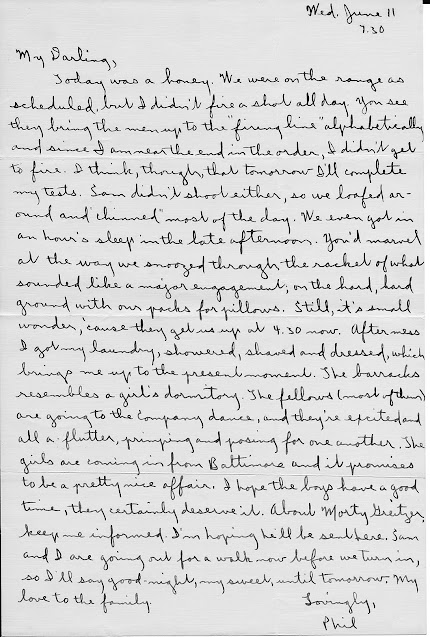 Wed. June 11
7.30
My Darling,
Today was a honey. We were on the range as
scheduled, but I didn't fire a shot all day. You see
they bring the men up to the "firing line" alphabetically
and since I am near the end in the order, I didn't get
to fire. I think, though, that tomorrow I'll complete
my tests. Sam didn't shoot either, so we loafed ar-
ound and "chinned" most of the day. We even got in
an hour's sleep in the late afternoon. You'd marvel
at the way we snoozed through the racket of what
sounded like a major engagement, on the hard, hard
ground with our packs for pillows. Still, it's small
wonder, 'cause they get us up at 4.30 now. After mess
I got my laundry, showered, shaved and dressed, which
brings me up to the present moment. The barracks
resembles a girl's dormitory. The fellows (most of them)
are going to the Company dance, and they're excited and
all a-flutter, primping and posing for one another. The
girls are coming in from Baltimore and it promises
to be a pretty nice affair. I hope the boys have a good
time, they certainly deserve it. About Morty Greitzer,
keep me informed. I'm hoping he'll be sent here. Sam
and I are going out for a walk now before we turn in,
so I'll say good-night, my sweet, until tomorrow. My
love to the family.
Lovingly,
Phil